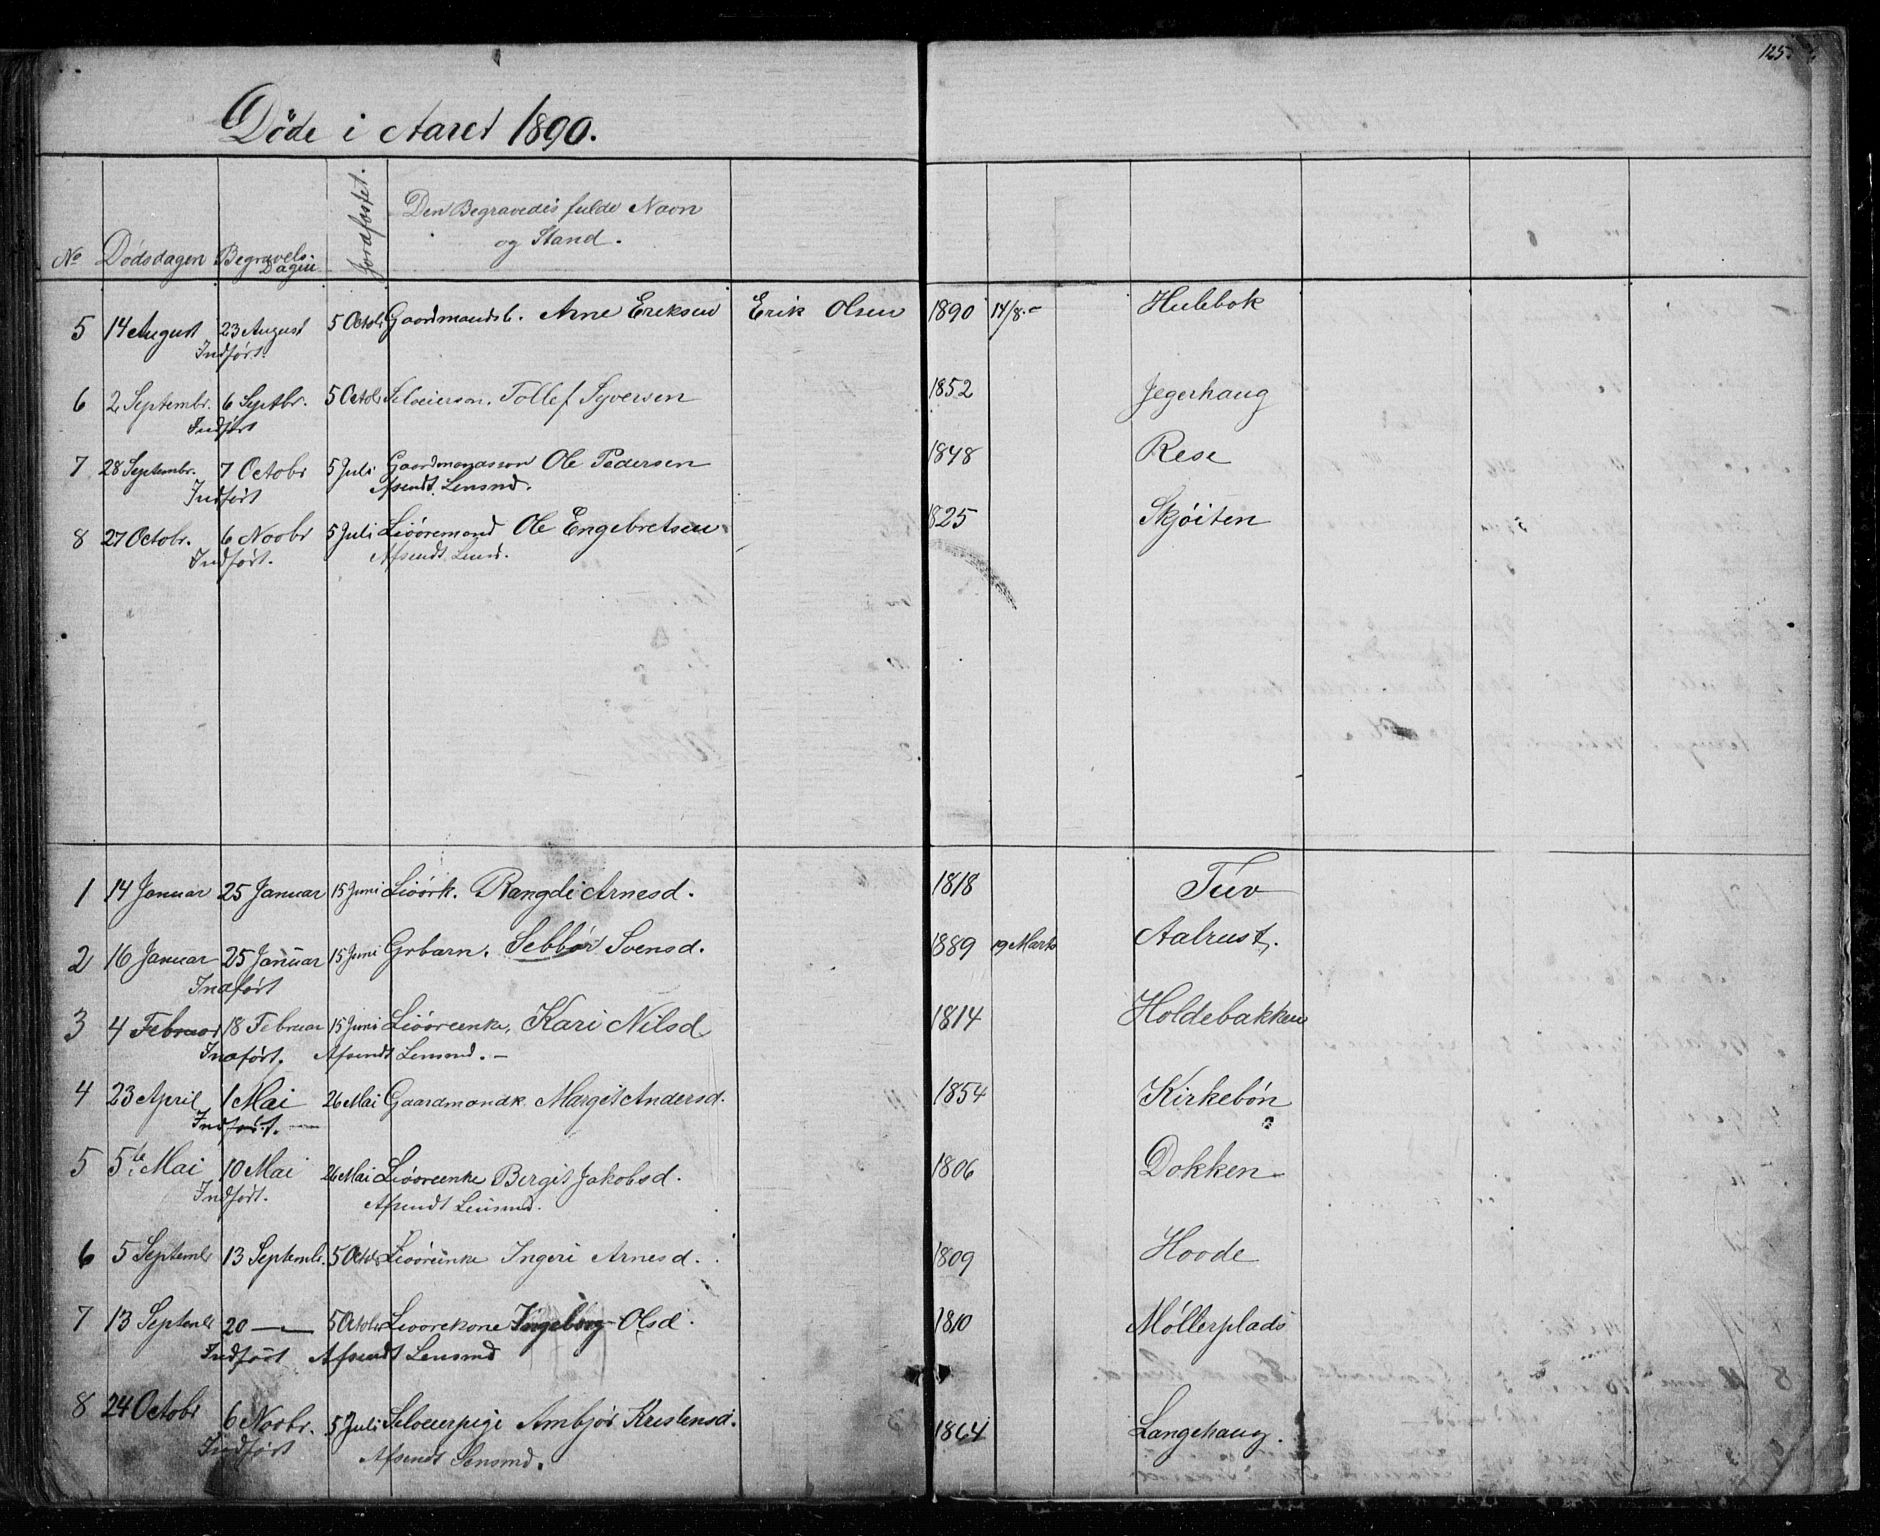 125
Døde i Aaret 1890.
No Dødsdagen Begravels-Dagen Jordfæstet. Den Begravedes fulde Navn og Stand.
5 14 August 23 August 5 Octob Gaardmandsb. Arne Eriksen Erik Olsen 1890 14/8 - Hulebok
Indført
6 2 Septembr. 6 Septbr. 5 Octob Selveiersøn. Tollef Syversen 1852 Jegerhaug
Indført
7 28 Septembr. 7 Octobr 5 Juli Gaardmandssøn Ole Pedersen 1848 Rese
Indført Afsendt Lensmd.
8 27 Octobr. 6 Novbr 5 Juli Livøremand Ole Engebretsen 1825 Skjøiten
Indført. Afsendt Lensd.
1 14 Januar 25 Januar 15 Juni Livørk. Rangdi Arnesd. 1818 Tuv
2 16 Januar 25 Januar 15 Juni Grbarn. Sebbør Svensd. 1889 19 Marts Aalrust.
Indført
3 4 Februar 18 Februar 15 Juni Livøreenke, Kari Nilsd 1814 Holdebakken
Indført. Afsendt Lensmd. -
4 23 April 1 Mai 26 Mai Gaardmandk. Margit Andersd. 1854 Kirkebøn
Indført. -
5 5te Mai 10 Mai 26 Mai Livøreenke Bergit Jakobsd. 1806 Dokken
Indført. Afsendt Lensmd.
6 5 Septembr 13 Septembr. 5 Octob Livøreenke Ingeri Arnesd. 1809 Hovde
7 13 Septembr 20 — 5 Octob Livørekone Ingeborg Olsd. 1810 Møllerplads
Indført Afsendt Lensmd
8 24 Octobr 6 Novbr. 5 Juli Selveierpige Ambjør Kristensd. 1864 Langehaug.
Indført Afsendt Lensmd.